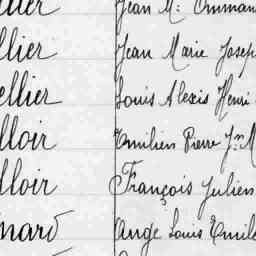 llier Jean Marie Josep
ellier Louis Alexis Henri
lloir Emilien Pierre Jn M
lloir François Julien
nard Ange Louis Emile